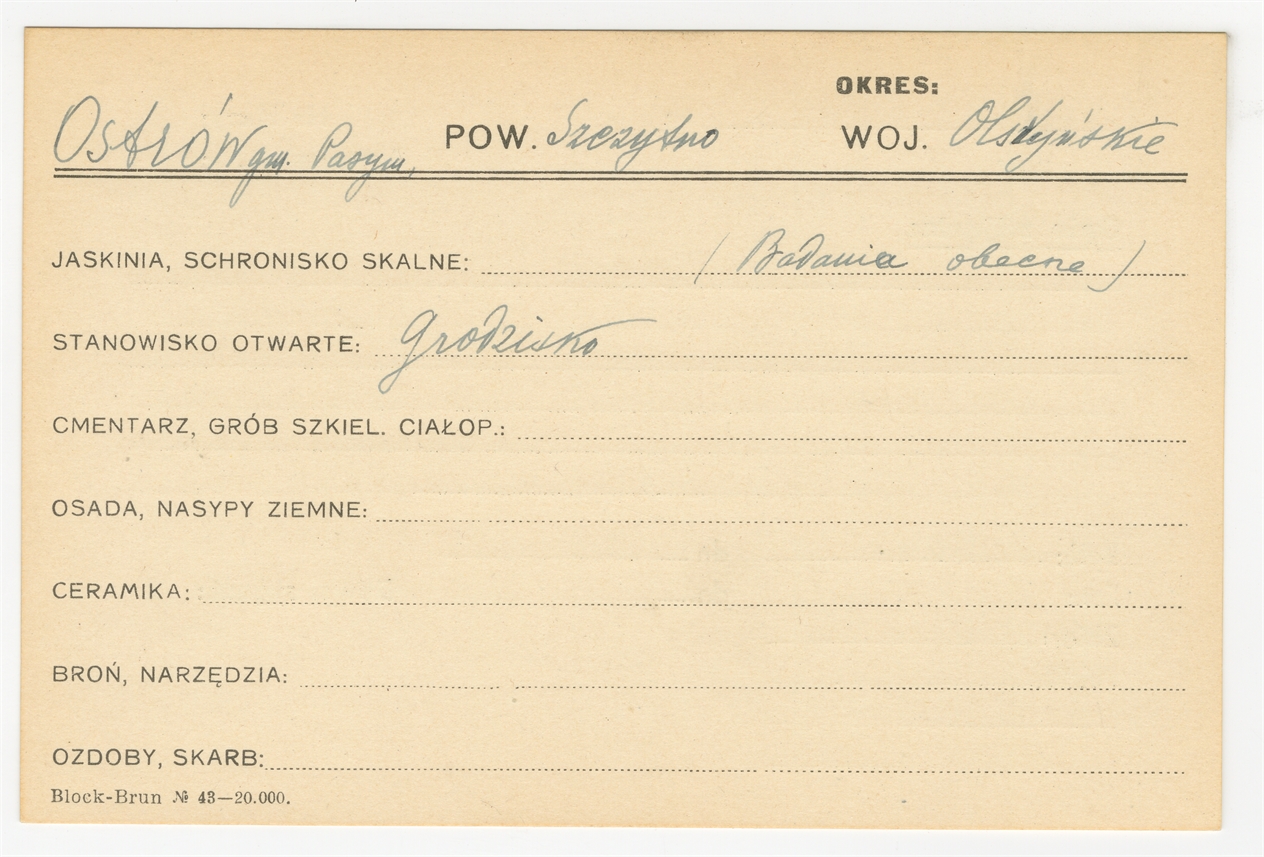 OKRES:
Ostrów gm. Pasym, POW. Szczytno WOJ. Olsztyńskie
JASKINIA, SCHRONISKO SKALNE: (Badania obecne)
STANOWISKO OTWARTE: Grodzisko
CMENTARZ, GRÓB SZKIEL. CIAŁOP.:
OSADA, NASYPY ZIEMNE:
CERAMIKA:
BROŃ, NARZĘDZIA:
OZDOBY, SKARB:
Block-Brun № 43—20.000.